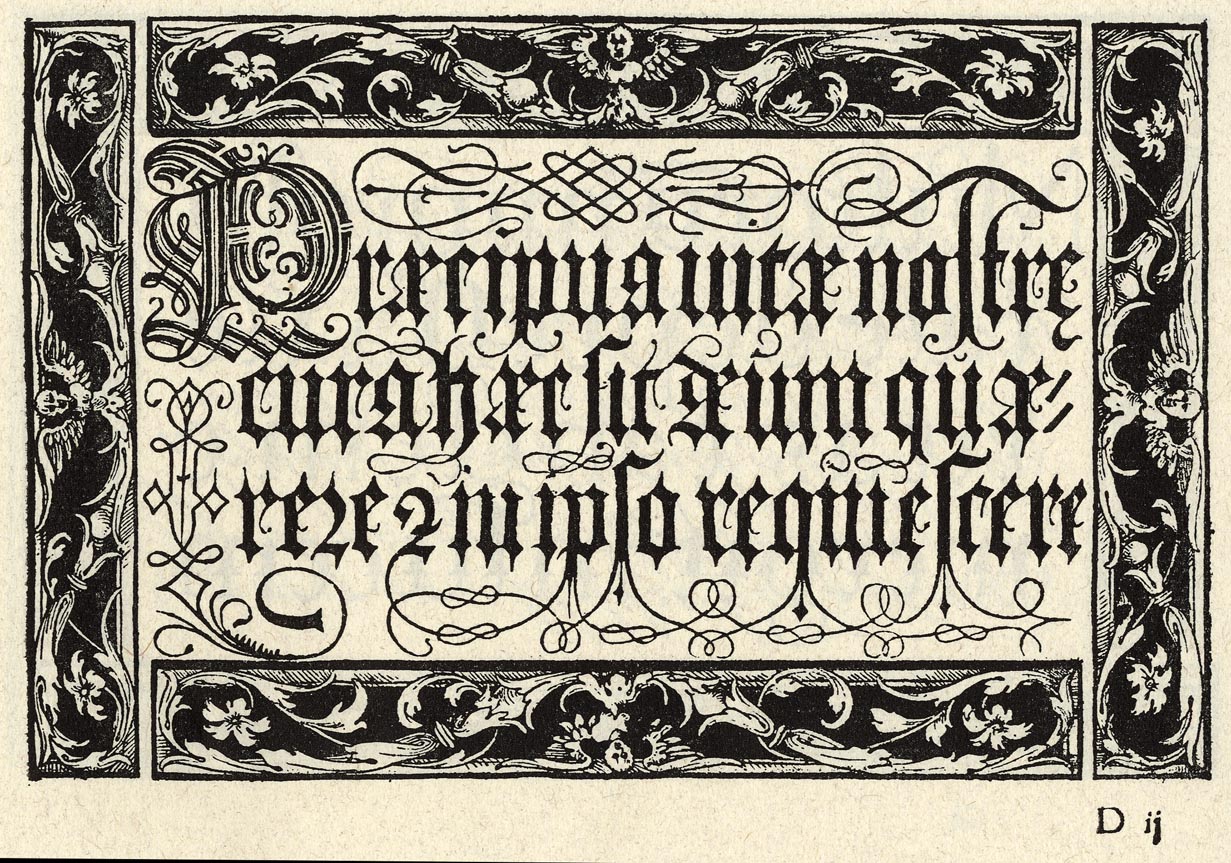 Præcipua uitæ noſtrę
cura hæc ſit Deum quæ⸗
rere & in ipſo requieſcere
D ij